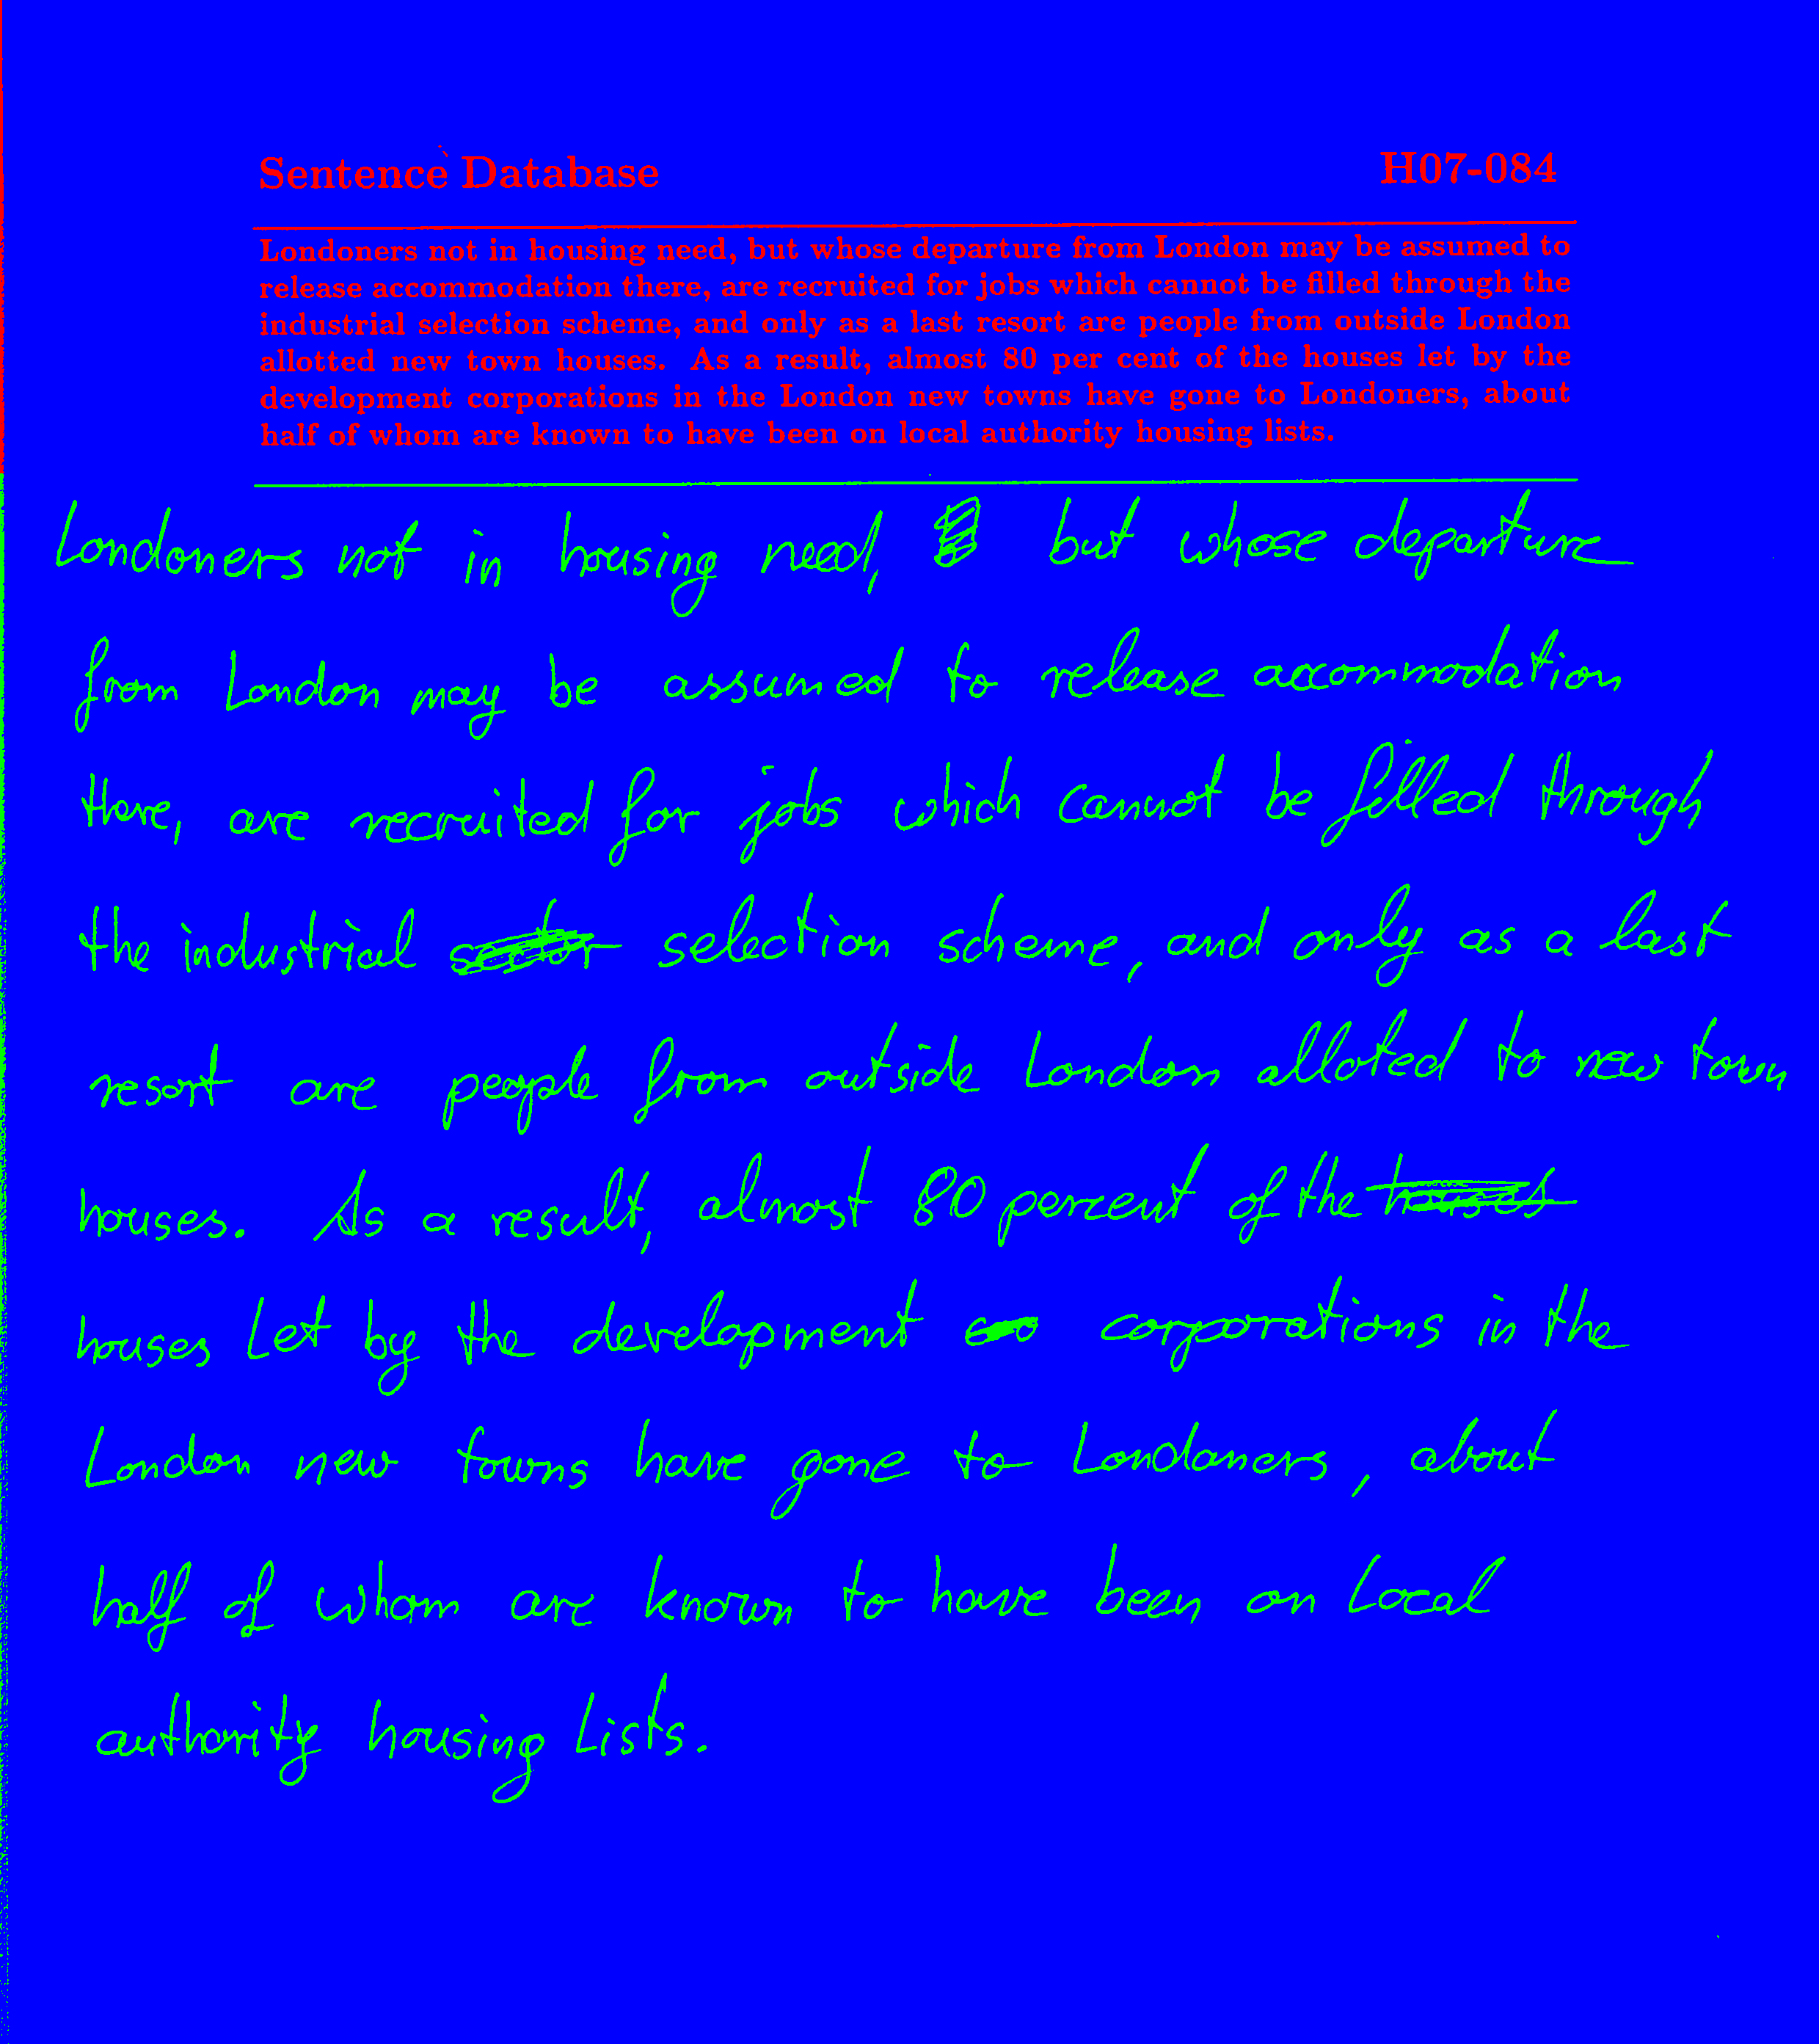 Sentence Database H07-084
Londoners not in housing need, but whose departure from London may be assumed to
release accommodation there, are recruited for jobs which cannot be filled through the
industrial selection scheme, and only as a last resort are people from outside London
allotted new town houses. As a result, almost 80 per cent of the houses let by the
development corporations in the London new towns have gone to Londoners, about
half of whom are known to have been on local authority housing lists.
Londoners not in housing need, but whose departure
from London may be assumed to release accommodation
there, are recruited for jobs which cannot be filled through
the industrial selection scheme, and only as a last
resort are people from outside London alloted to new town
houses. As a result, almost 80 percent of the
houses let by the development corporations in the
London new towns have gone to Londoners, about
half of whom are known to have been on local
authority housing lists.